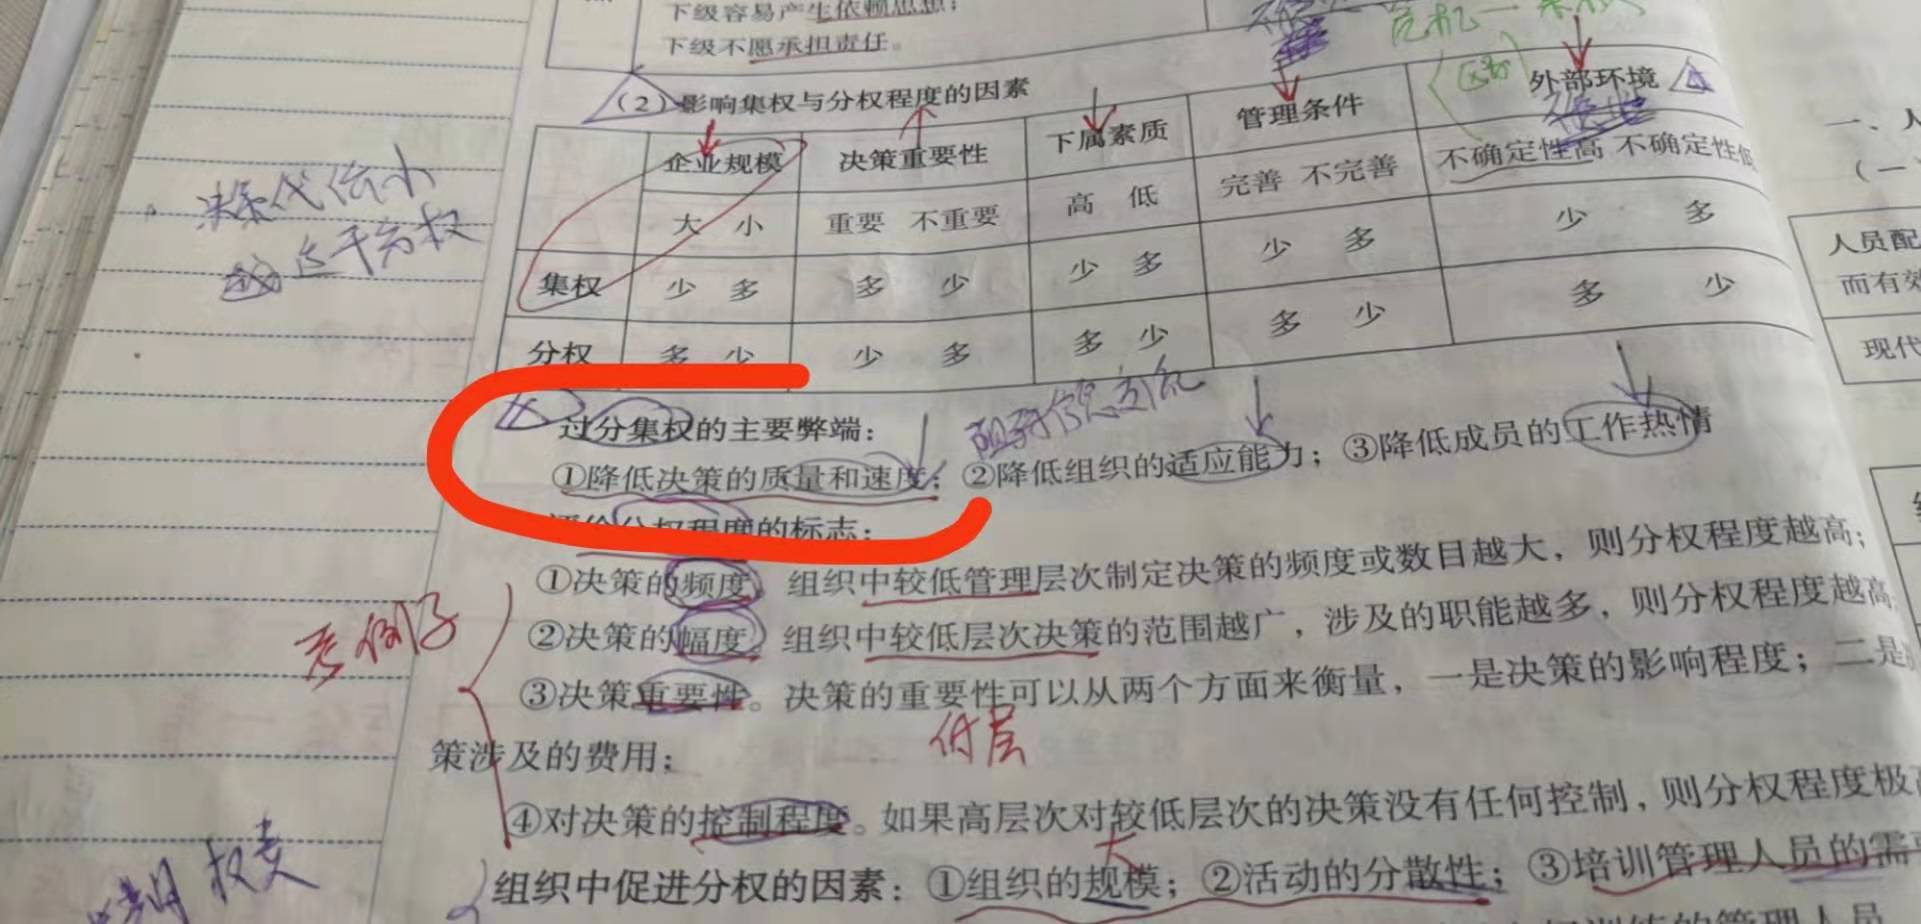 下级容易产生依赖思想;
下级不愿承担责任。
危机一
(2)影响集权与分权程度的因素
企业规模 决策重要性 下属素质 管理条件 外部环境
大 小 重要 不重要 高 低 完善 不完善 不确定性高 不确定性低
集权 少 多 多 少 少 多 少 多 少 多
分权 多 少 少 多 多 少 多 少 多 少
一、人
(一
人员配
而有效
现代
过分集权的主要弊端:
①降低决策的质量和速度;②降低组织的适应能力;③降低成员的工作热情
评价分权程度的标志:
①决策的频度。组织中较低管理层次制定决策的频度或数目越大,则分权程度越高;
②决策的幅度。组织中较低层次决策的范围越广,涉及的职能越多,则分权程度越高
考例子
③决策重要性。决策的重要性可以从两个方面来衡量,一是决策的影响程度;二是
策涉及的费用;
④对决策的控制程度。如果高层次对较低层次的决策没有任何控制,则分权程度极
大
组织中促进分权的因素:①组织的规模;②活动的分散性;③培训管理人员的需